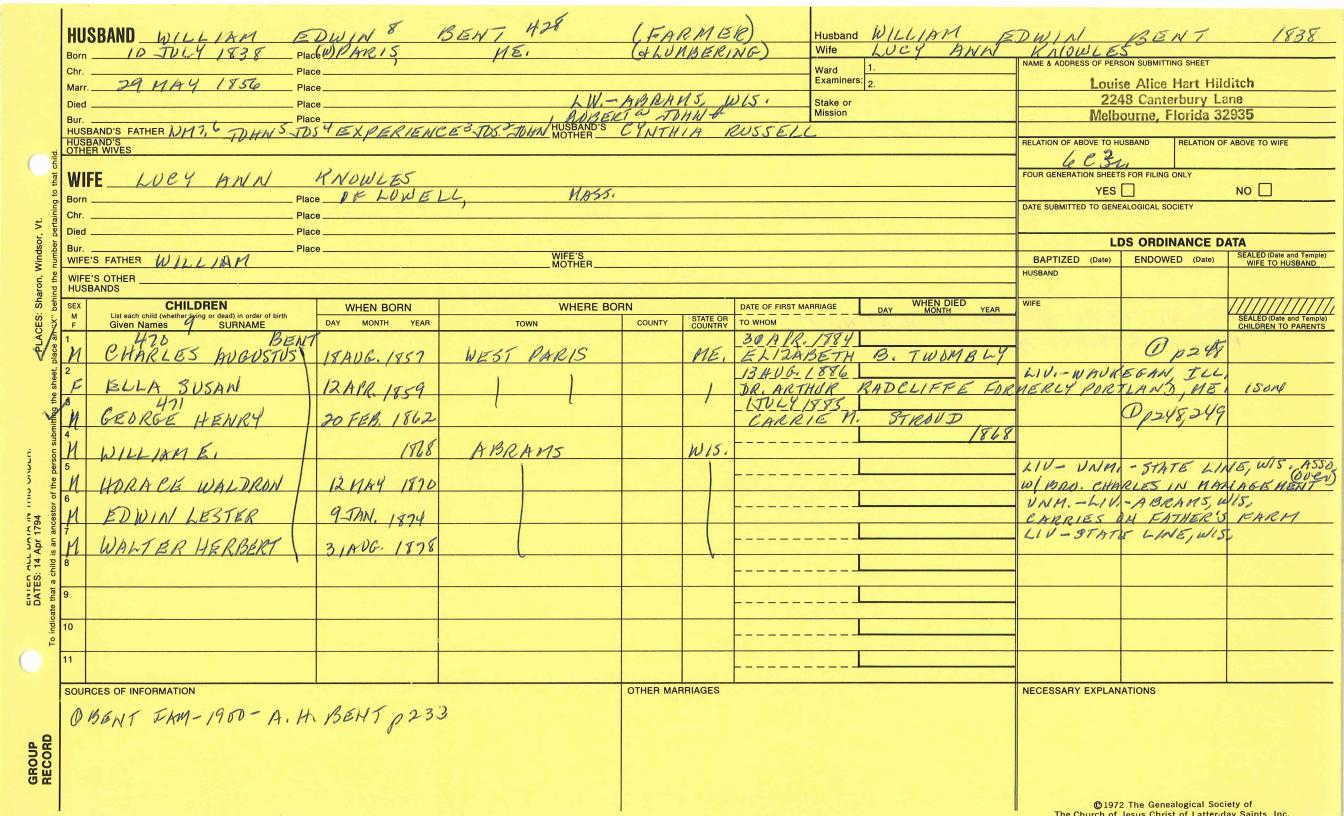 HUSBAND WILLIAM EDWIN 8 BENT 428 (FARMER)
Born 10 JULY 1838 Place (W) PARIS, ME. (& LUMBERING)
Chr. Place
Marr. 29 MAY 1856 Place
Died Place LIV.-ABRAMS, WIS.
Bur. Place
HUSBAND'S FATHER WM 7, 6 JOHN 5 JOS 4 EXPERIENCE 3 JOS 2 JOHN HUSBAND'S MOTHER CYNTHIA RUSSELL
ROBERT JOHN
HUSBAND'S OTHER WIVES
Husband WILLIAM EDWIN BENT 1838
Wife LUCY ANN KNOWLES
Ward Examiners: 1.
2.
Stake or Mission
NAME & ADDRESS OF PERSON SUBMITTING SHEET
Louise Alice Hart Hilditch
2248 Canterbury Lane
Melbourne, Florida 32935
RELATION OF ABOVE TO HUSBAND RELATION OF ABOVE TO WIFE
6C3R
FOUR GENERATION SHEETS FOR FILING ONLY
YES NO
DATE SUBMITTED TO GENEALOGICAL SOCIETY
WIFE LUCY ANN KNOWLES
Born Place OF LOWELL, MASS.
Chr. Place
Died Place
Bur. Place
WIFE'S FATHER WILLIAM WIFE'S MOTHER
WIFE'S OTHER HUSBANDS
LDS ORDINANCE DATA
BAPTIZED (Date) ENDOWED (Date) SEALED (Date and Temple) WIFE TO HUSBAND
HUSBAND
WIFE
SEALED (Date and Temple) CHILDREN TO PARENTS
SEX M F CHILDREN WHEN BORN WHERE BORN DATE OF FIRST MARRIAGE WHEN DIED
List each child (whether living or dead) in order of birth
Given Names 9 SURNAME DAY MONTH YEAR TOWN COUNTY STATE OR COUNTRY TO WHOM DAY MONTH YEAR
1 470 BENT 30 APR. 1884
M CHARLES AUGUSTUS 18 AUG. 1857 WEST PARIS ME. ELIZABETH B. TWOMBLY ① p248
2 13 AUG. 1886 LIV.-WAUKEGAN, ILL.
F ELLA SUSAN 12 APR. 1859 DR. ARTHUR RADCLIFFE FORMERLY PORTLAND, ME. 1 SON
3 471 1 JULY 1885
M GEORGE HENRY 20 FEB. 1862 CARRIE M. STROUD ① p248,249
4 1868
M WILLIAM E. 1868 ABRAMS WIS.
5 LIV- UNM. - STATE LINE, WIS. ASSO.
M HORACE WALDRON 12 MAY 1870 W/ BRO. CHARLES IN MANAGEMENT (OVER)
6 UNM.-LIV.-ABRAMS, WIS.
M EDWIN LESTER 9 JAN. 1874 CARRIES ON FATHER'S FARM
7 LIV-STATE LINE, WIS.
M WALTER HERBERT 31 AUG. 1878
8
9
10
11
SOURCES OF INFORMATION OTHER MARRIAGES NECESSARY EXPLANATIONS
① BENT FAM-1900- A.H. BENT p233
©1972 The Genealogical Society of
The Church of Jesus Christ of Latter-day Saints, Inc.
PLACES: Sharon, Windsor, Vt.
ENTER ALL DATA IN THIS ORDER:
DATES: 14 Apr 1794
To indicate that a child is an ancestor of the person submitting the sheet, place an "X" behind the number pertaining to that child.
GROUP RECORD